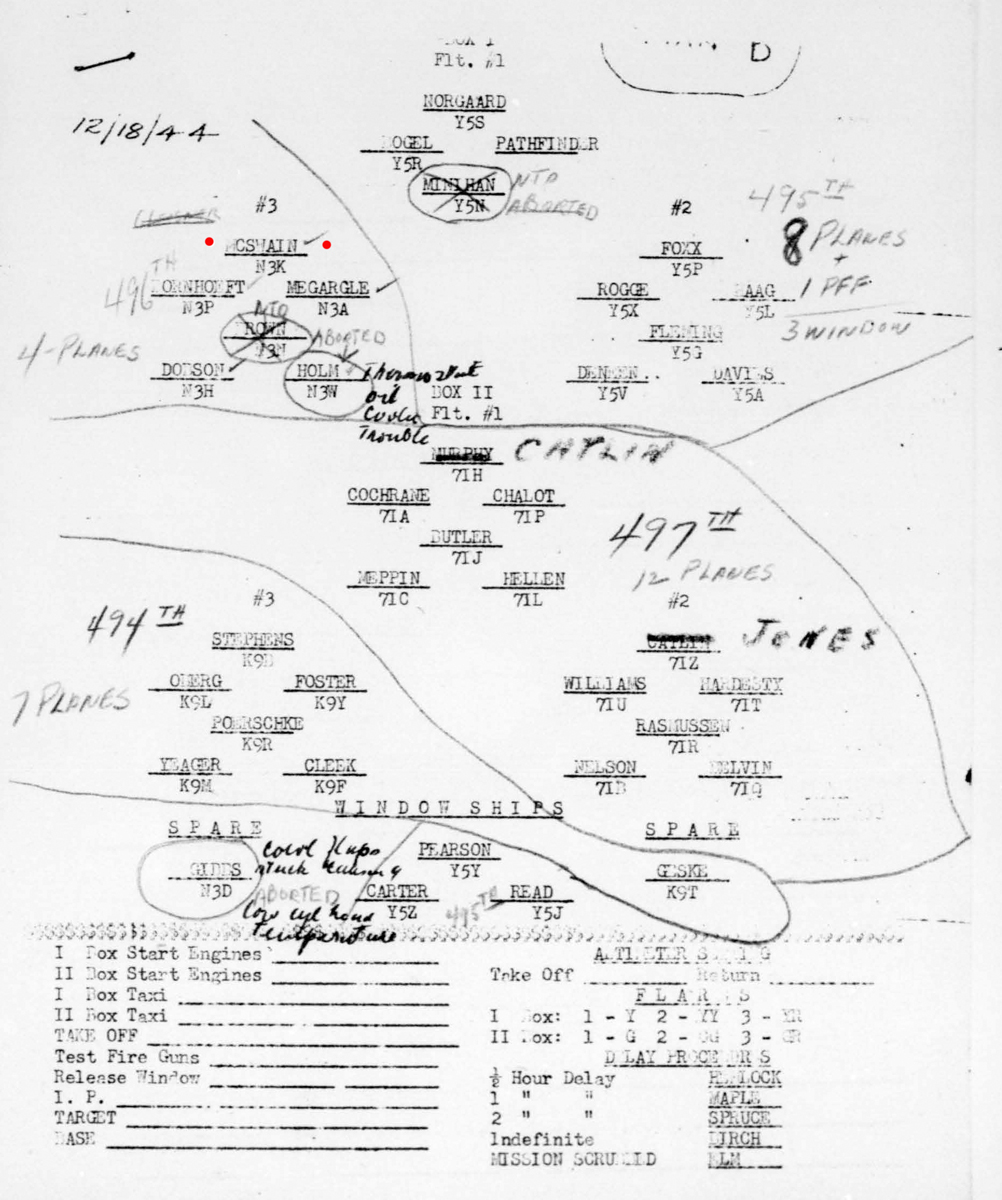 Flt. #1
D
NORGAARD
Y5S
12/18/44
PATHFINDER
Y5R
MINIHAN NTO
Y5N ABORTED
#3
#2
495TH
8 PLANES
+
1 PFF
3 WINDOW
MCSWAIN
N3K
FOXX
Y5P
496TH
DORNHOEFT MEGARGLE
N3P N3A
ROGGE HAAG
Y5X Y5L
NTO
BROWN ABORTED
N3N
FLEMING
Y5G
4-PLANES
DODSON HOLM Thermostat
N3H N3W oil
Cooler
Trouble
DENEEN DAVIES
Y5V Y5A
BOX II
Flt. #1
MURPHY CATLIN
71H
COCHRANE CHALOT
71A 71P
BUTLER
71J
497TH
12 PLANES
MEPPIN HELLEN
71C 71L
#3
#2
494TH
STEPHENS
K9B
CATLIN JONES
71Z
7 PLANES
OBERG FOSTER
K9L K9Y
WILLIAMS HARDESTY
71U 71T
POERSCHKE
K9R
RASMUSSEN
71R
YEAGER CLEEK
K9M K9F
NELSON
71B 71Q
WINDOW SHIPS
SPARE
SPARE
GIBBS Cowl flaps
N3D stuck causing
ABORTED
low cyl head
Temperature
PEARSON
Y5Y
CARTER 495TH READ
Y5Z Y5J
GESKE
K9T
I Box Start Engines
II Box Start Engines
I Box Taxi
II Box Taxi
TAKE OFF
Test Fire Guns
Release Window
I. P.
TARGET
BASE
ALTIMETER SETTING
Take Off Return
FLARES
I Box: 1 - Y 2 - YY 3 -
II Box: 1 - G 2 - GG 3 -
DELAY PROCEDURES
½ Hour Delay HEMLOCK
1 " " MAPLE
2 " " SPRUCE
Indefinite BIRCH
MISSION SCRUBBED ELM